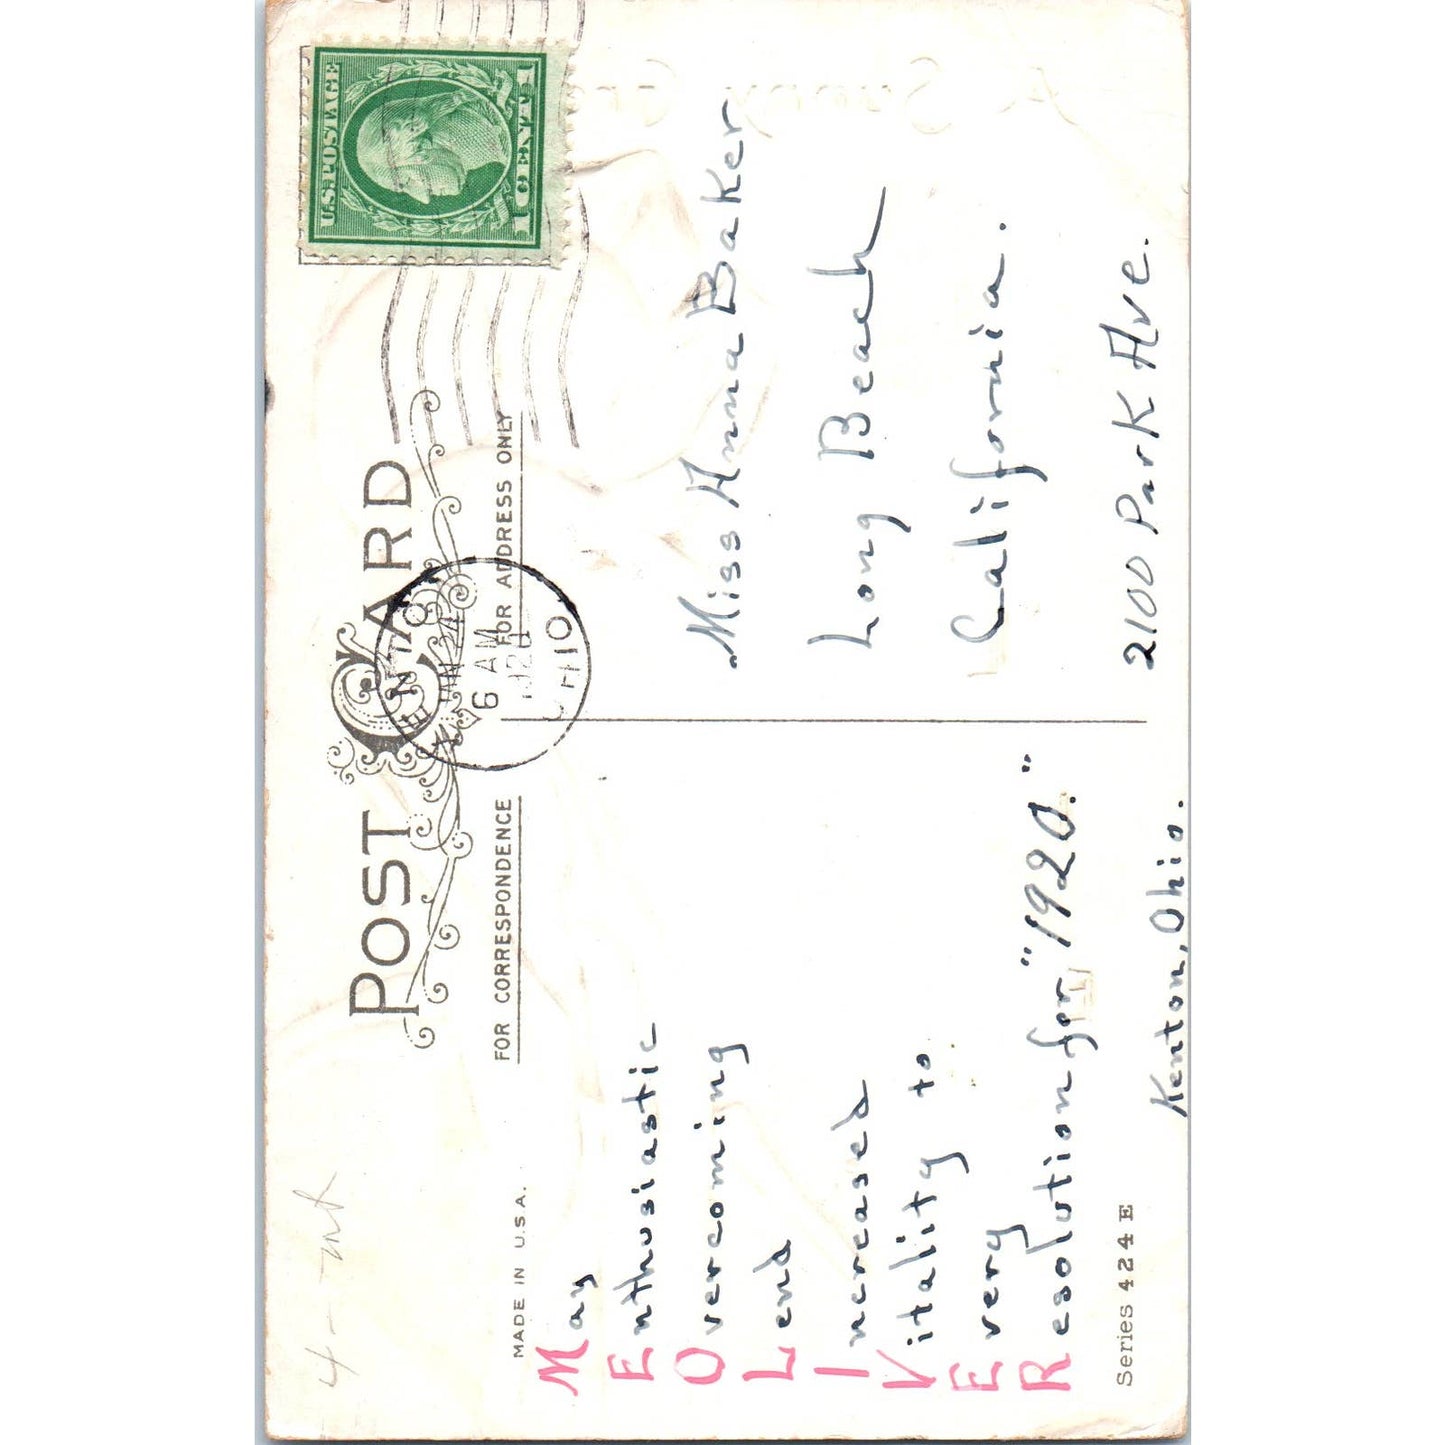 POST CARD
FOR CORRESPONDENCE
FOR ADDRESS ONLY
MADE IN U.S.A.
U.S. POSTAGE
1 CENT 1
KENTON
JAN 24
6 AM
1920
OHIO
A Sunny Gre
May
Enthusiastic
Overcoming
Lend
Increased
Vitality to
Every
Resolution for "1920."
Kenton, Ohio.
Series 424 E
Miss Anna Baker
Long Beach
California.
2100 Park Ave.